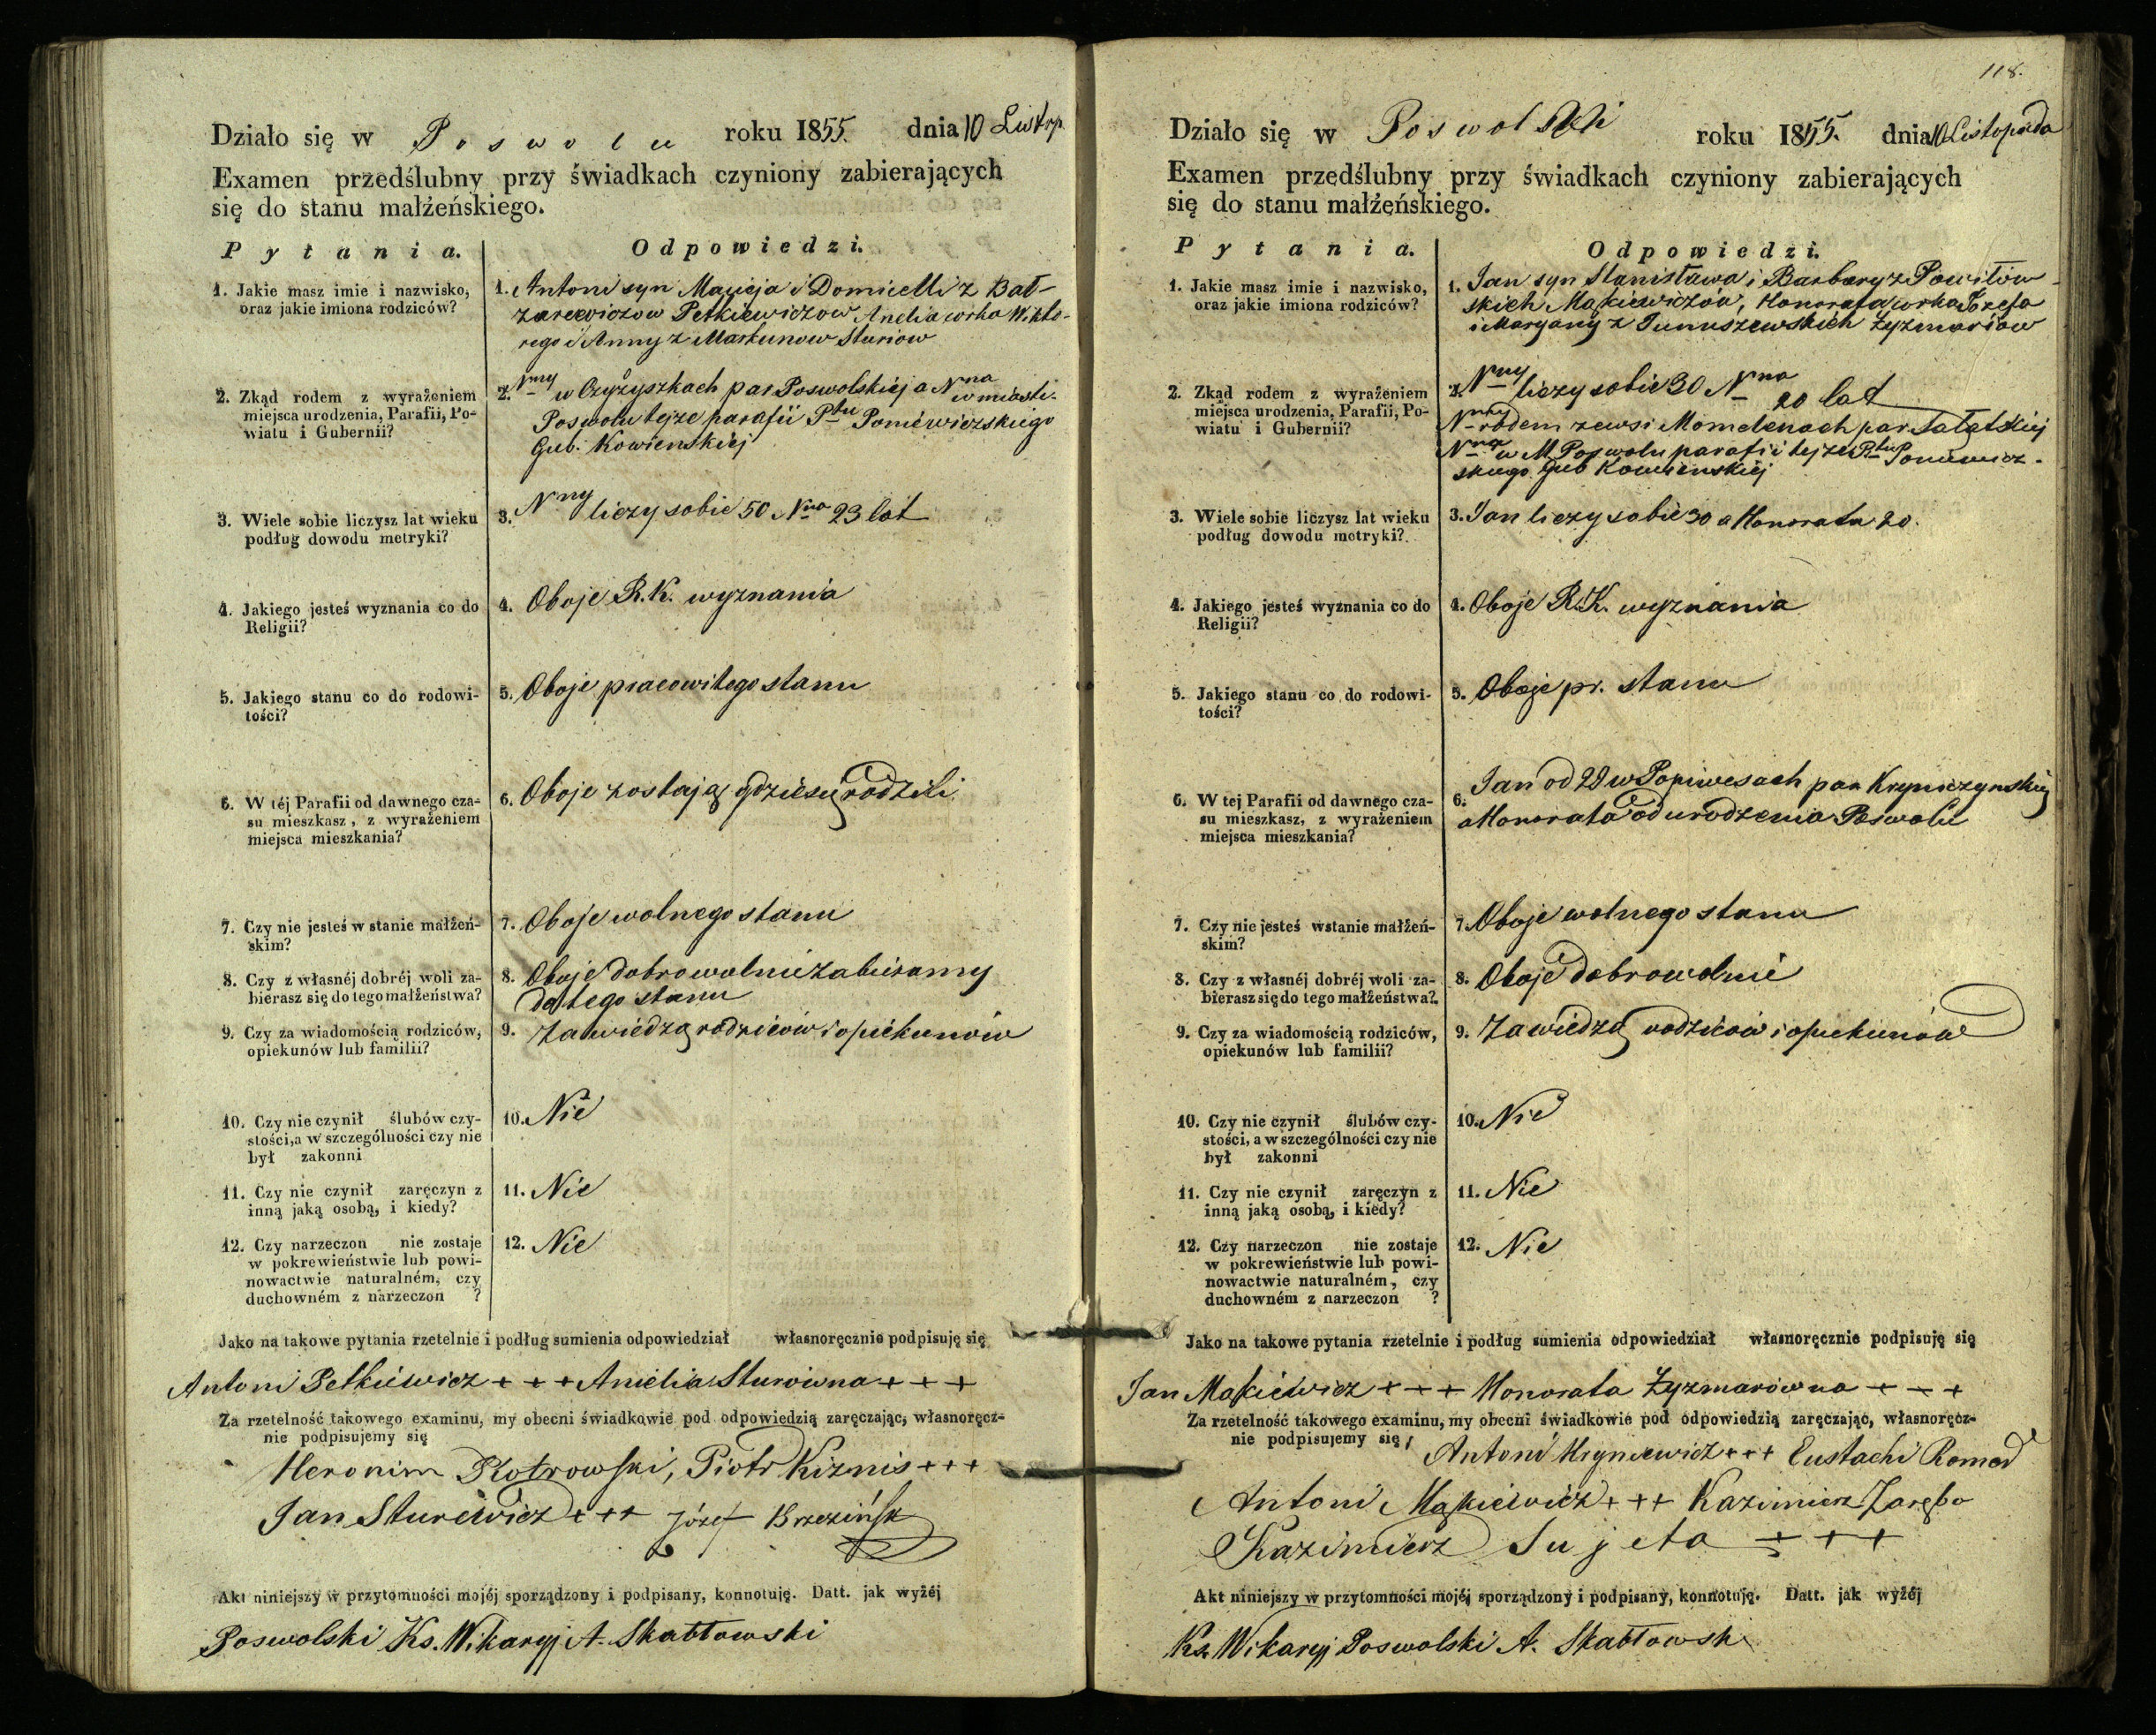 Działo się w Poswolu roku 1855. dnia 10 Listop.
Examen przedślubny przy świadkach czyniony zabierających
się do stanu małżeńskiego.
Pytania. Odpowiedzi.
1. Jakie masz imie i nazwisko,
oraz jakie imiona rodziców?
1. Antoni syn Macieja i Domicelli z Bał-
zarewiczow Petkiewiczow, Anelia corka Wikto-
rego i Anny z Markunow Sturiow
2. Zkąd rodem z wyrażeniem
miejsca urodzenia, Parafii, Po-
wiatu i Gubernii?
2. Nny w Czyżyszkach par Poswolskiej a Nna w miast.
Poswolu tejże parafii Ptu Poniewiezskiego
Gub. Kowienskiej
3. Wiele sobie liczysz lat wieku
podług dowodu metryki?
3. Nny liczy sobie 50 Nna 23 lat
4. Jakiego jesteś wyznania co do
Religii?
4. Oboje R. K. wyznania
5. Jakiego stanu co do rodowi-
tości?
5. Oboje pracowitego stanu
6. W téj Parafii od dawnego cza-
su mieszkasz, z wyrażeniem
miejsca mieszkania?
6. Oboje zostają gdzie się rodzili
7. Czy nie jesteś w stanie małżeń-
skim?
7. Oboje wolnego stanu
8. Czy z własnéj dobréj woli za-
bierasz się do tego małżeństwa?
8. Oboje dobrowolnie zabieramy
do tego stanu
9. Czy za wiadomością rodziców,
opiekunów lub familii?
9. Za wiedzą rodziców i opiekunów
10. Czy nie czynił ślubów czy-
stości, a w szczególności czy nie
był zakonni
10. Nie
11. Czy nie czynił zaręczyn z
inną jaką osobą, i kiedy?
11. Nie
12. Czy narzeczon nie zostaje
w pokrewieństwie lub powi-
nowactwie naturalném, czy
duchowném z narzeczon ?
12. Nie
Jako na takowe pytania rzetelnie i podług sumienia odpowiedział własnoręcznie podpisuję się
Antoni Petkiewicz + + + Anielia Sturowna + + +
Za rzetelność takowego examinu, my obecni świadkowie pod odpowiedzią zaręczając, własnoręcz-
nie podpisujemy się
Heronim Piotrowski, Piotr Kiznis + + +
Jan Sturewicz + + + Józef Brzezińsk
Akt niniejszy w przytomności mojéj sporządzony i podpisany, konnotuję. Datt. jak wyżéj
Poswolski Ks. Wikaryj A. Skabłowski
118.
Działo się w Poswolski roku 1855. dnia 10 Listopada
Examen przedślubny przy świadkach czyniony zabierających
się do stanu małżeńskiego.
Pytania. Odpowiedzi.
1. Jakie masz imie i nazwisko,
oraz jakie imiona rodziców?
1. Jan syn Stanisława i Barbary z Powiłow-
skich Mackiewiczów, Honorata corka Józefa
i Maryany z Junuszewskich Żyzmariow
2. Zkąd rodem z wyrażeniem
miejsca urodzenia, Parafii, Po-
wiatu i Gubernii?
2. Nny liczy sobie 30 Nna 20 lat
Nny rodem ze wsi Momelenach par Sałatskiej
Nna w M Poswolu parafii tejże Ptu Poniewicz-
skiego Gub Kowienskiej
3. Wiele sobie liczysz lat wieku
podług dowodu metryki?
3. Jan liczy sobie 30 a Honorata 20.
4. Jakiego jesteś wyznania co do
Religii?
4. Oboje R.K. wyznania
5. Jakiego stanu co do rodowi-
tości?
5. Oboje pr. stanu
6. W tej Parafii od dawnego cza-
su mieszkasz, z wyrażeniem
miejsca mieszkania?
6. Jan od 28 w Popiwesach par Krynczynskiej
a Honorata od urodzenia Poswolu
7. Czy nie jesteś wstanie małżeń-
skim?
7. Oboje wolnego stanu
8. Czy z własnéj dobréj woli za-
bierasz się do tego małżeństwa?
8. Oboje dobrowolnie
9. Czy za wiadomością rodziców,
opiekunów lub familii?
9. Za wiedzą rodziców i opiekunów
10. Czy nie czynił ślubów czy-
stości, a w szczególności czy nie
był zakonni
10. Nie
11. Czy nie czynił zaręczyn z
inną jaką osobą, i kiedy?
11. Nie
12. Czy narzeczon nie zostaje
w pokrewieństwie lub powi-
nowactwie naturalném, czy
duchowném z narzeczon ?
12. Nie
Jako na takowe pytania rzetelnie i podług sumienia odpowiedział własnoręcznie podpisuję się
Jan Mackiewicz + + + Honorata Żyzmarowna + + +
Za rzetelność takowego examinu, my obecni świadkowie pod odpowiedzią zaręczając, własnoręcz-
nie podpisujemy się, Antoni Hryniewicz + + + Eustachi Romer
Antoni Mackiewicz + + + Kazimierz Zaręba
Kazimierz Sujeta + + +
Akt niniejszy w przytomności mojéj sporządzony i podpisany, konnotuję. Datt. jak wyżéj
Ks. Wikaryj Poswolski A. Skabłowsk